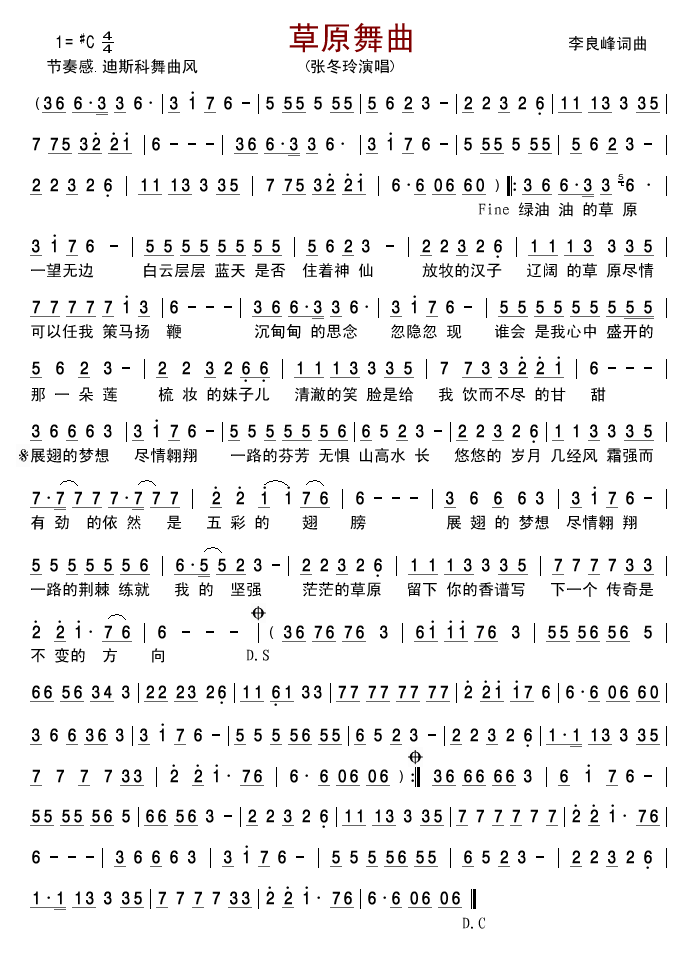 草原舞曲
1= #C 4/4
李良峰词曲
节奏感.迪斯科舞曲风
(张冬玲演唱)
(36 6·3 3 6· | 3 i 7 6 - | 5 55 5 55 | 5 6 2 3 - | 2 2 3 2 6 | 11 13 3 35 |
7 75 32 2i | 6 - - - | 36 6·3 3 6· | 3 i 7 6 - | 5 55 5 55 | 5 6 2 3 - |
2 2 3 2 6 | 11 13 3 35 | 7 75 32 2i | 6·6 06 60 ) ‖: 3 6 6·3 3 5 6 ·
Fine 绿油 油 的草 原
3 i 7 6 - | 5 5 5 5 5 5 5 5 | 5 6 2 3 - | 2 2 3 2 6 | 1 1 1 3 3 3 5 |
一望无边 白云层层 蓝天 是否 住着神 仙 放牧的汉子 辽阔 的草 原尽情
7 7 7 7 7 i 3 | 6 - - - | 3 6 6·3 3 6· | 3 i 7 6 - | 5 5 5 5 5 5 5 5 5 |
可以任我 策马扬 鞭 沉甸甸 的思念 忽隐忽 现 谁会 是我心中 盛开的
5 6 2 3 - | 2 2 3 2 6 6 | 1 1 1 3 3 3 5 | 7 7 3 3 2 2 i | 6 - - |
那 一 朵 莲 梳 妆 的妹子儿 清澈的笑 脸是给 我 饮而不尽 的甘 甜
3 6 6 6 3 | 3 i 7 6 - | 5 5 5 5 5 5 6 | 5 6 2 3 - | 2 2 3 2 6 | 1 1 3 3 3 5 |
※展翅的梦想 尽情翱翔 一路的芬芳 无惧 山高水 长 悠悠的 岁月 几经风 霜强而
7·7 7 7 7·7 7 7 | 2 2 i i 7 6 | 6 - - - | 3 6 6 6 3 | 3 i 7 6 - |
有 劲 的依 然 是 五 彩 的 翅 膀 展 翅 的 梦想 尽情翱 翔
5 5 5 5 5 5 6 | 6·5 5 2 3 - | 2 2 3 2 6 | 1 1 1 3 3 3 5 | 7 7 7 7 3 3 |
一路的荆棘 练就 我 的 坚强 茫茫的草原 留下 你的香谱写 下一个 传奇是
2 2 i· 7 6 | 6 - - - | ( 36 76 76 3 | 6i ii 76 3 | 55 56 56 5 |
不 变的 方 向 D.S
66 56 34 3 | 22 23 26 | 11 61 33 | 77 77 77 77 | 2 2i i7 6 | 6·6 06 60 |
3 6 6 36 3 | 3 i 7 6 - | 5 5 5 56 55 | 6 5 2 3 - | 2 2 3 2 6 | 1·1 13 3 35 |
7 7 7 7 33 | 2 2 i· 76 | 6·6 06 06 ) :‖ 36 66 66 3 | 6 i 7 6 - |
55 55 56 5 | 66 56 3 - | 2 2 3 2 6 | 11 13 3 35 | 7 7 7 7 7 7 | 2 2 i· 76 |
6 - - - | 3 6 6 6 3 | 3 i 7 6 - | 5 5 5 56 55 | 6 5 2 3 - | 2 2 3 2 6 |
1·1 13 3 35 | 7 7 7 7 33 | 2 2 i· 76 | 6·6 06 06 ‖
D.C